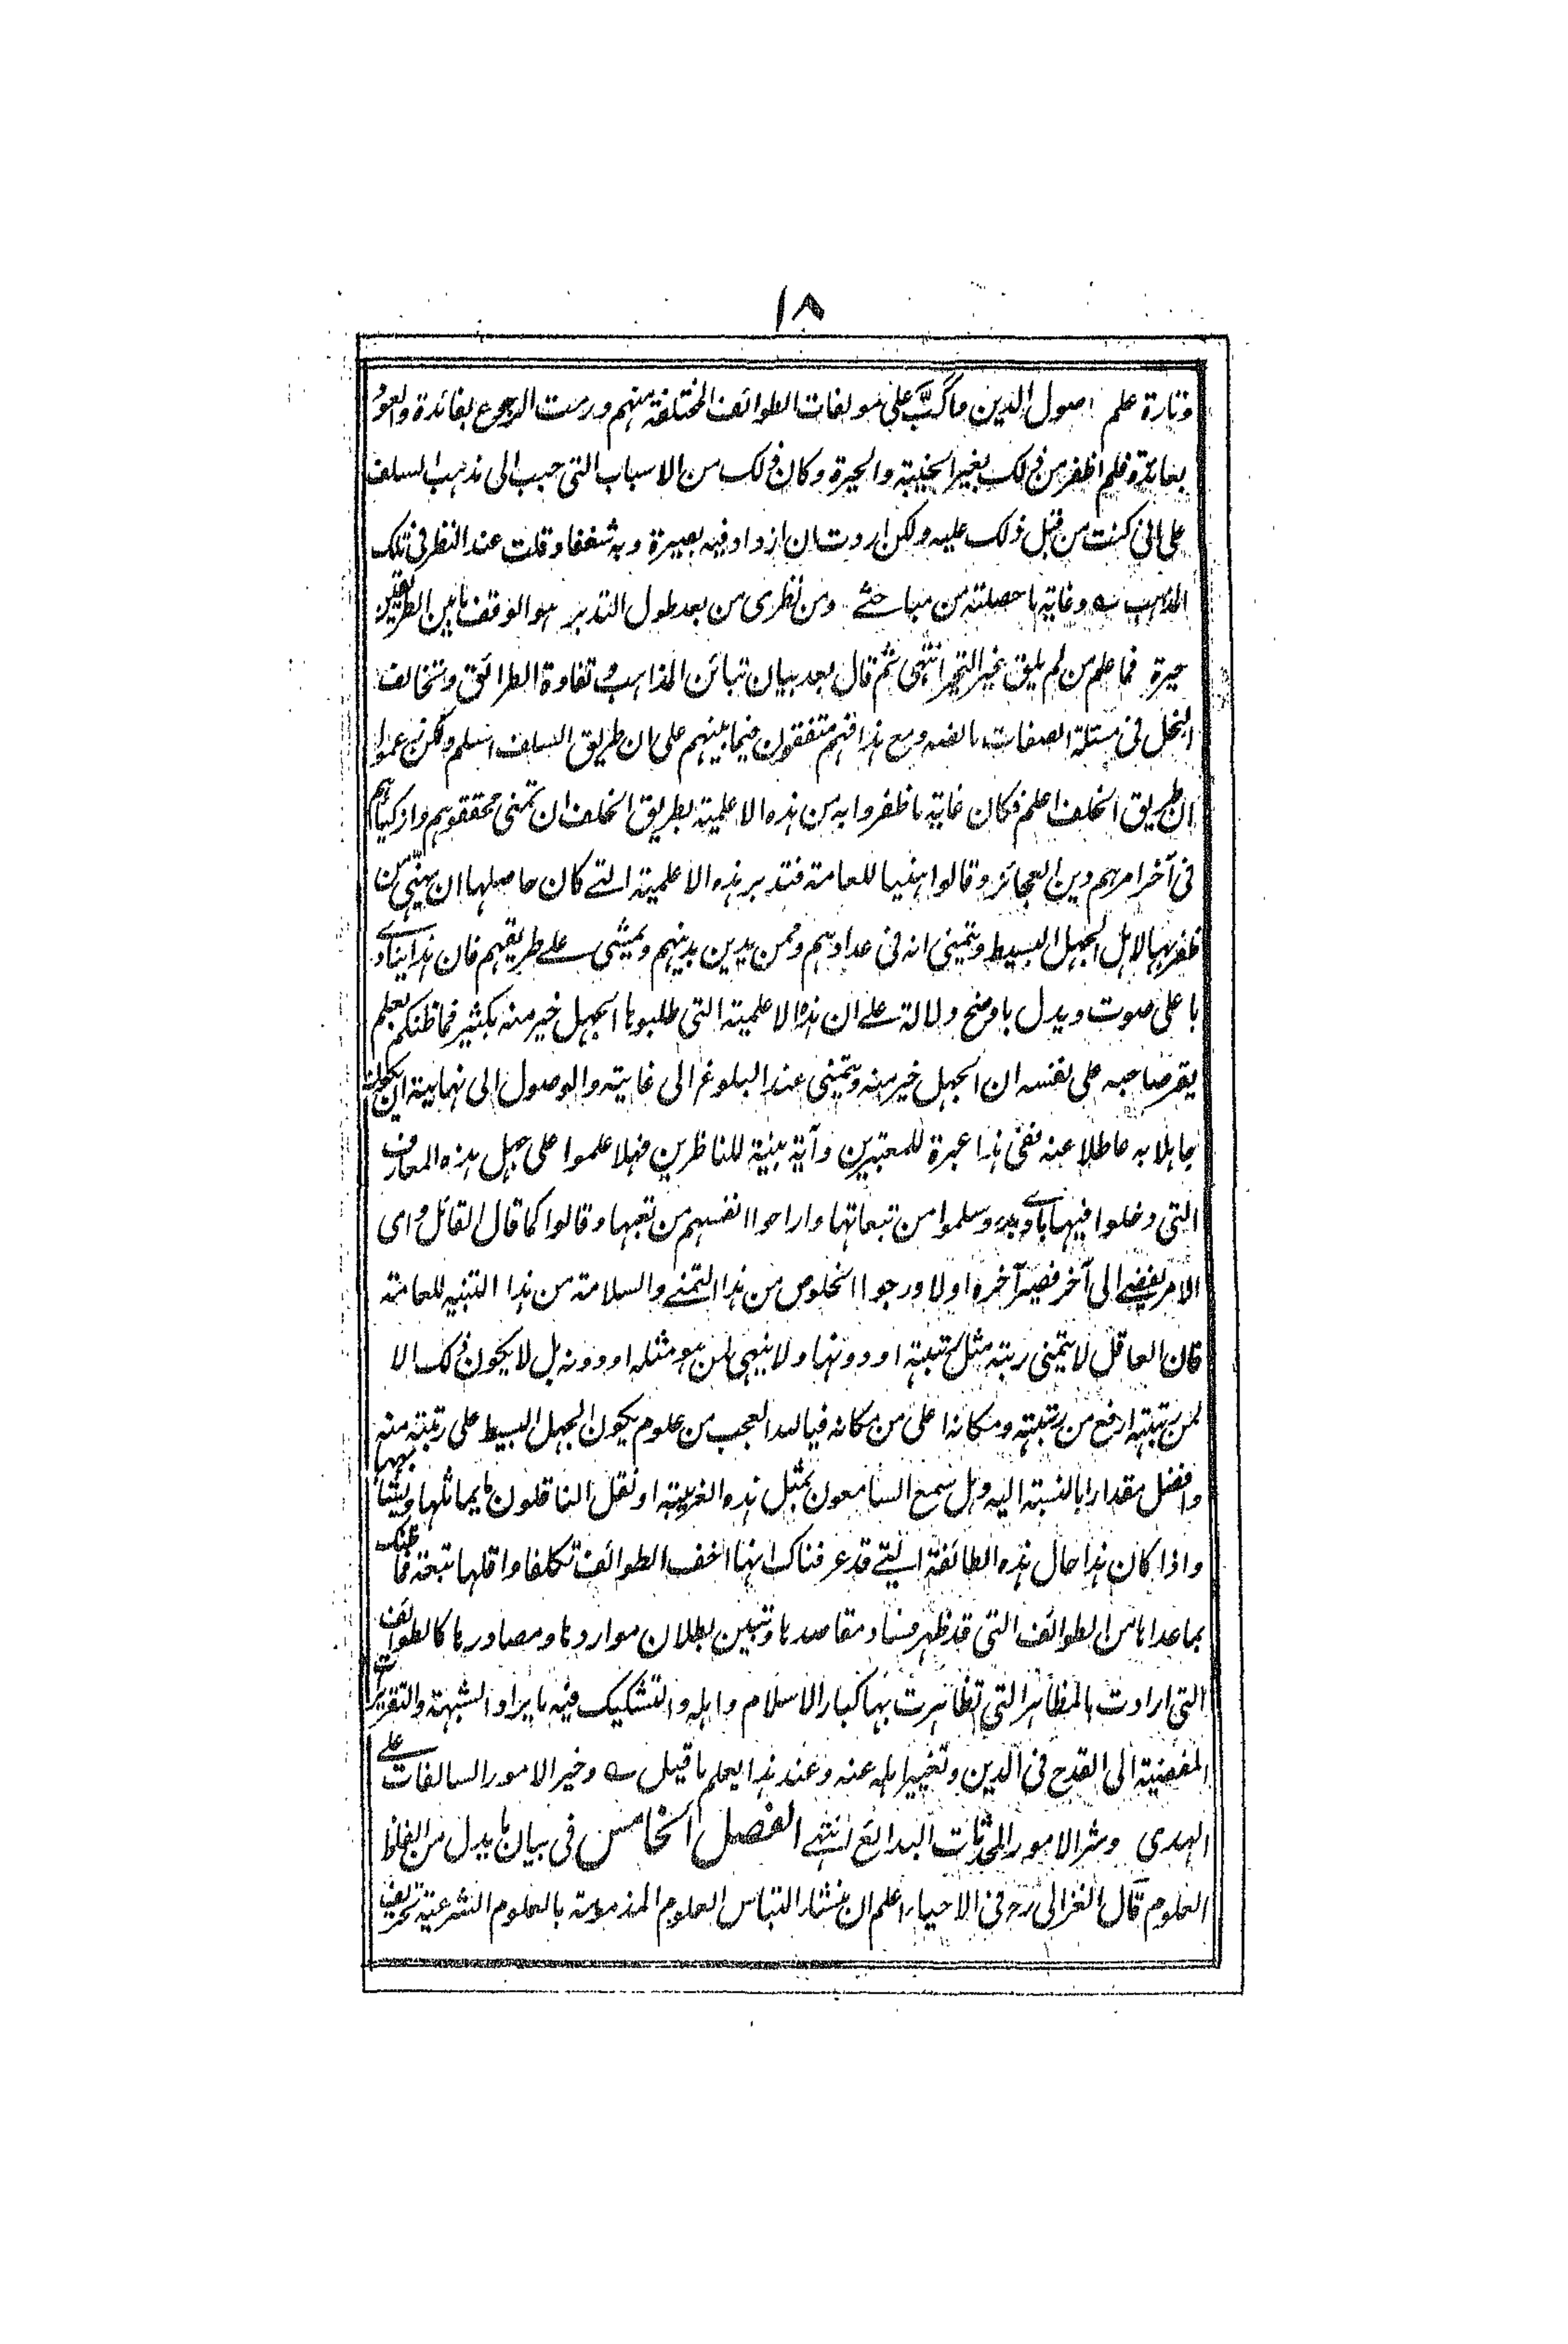 ١٨
وتارة علم اصول الدين فاكبّ على مولفات الطوائف المختلفة منهم ورمت الرجوع بفائدة والعود
بعائدة فلم اظفر من ذلك بغير الخيبة والحيرة وكان ذلك من الاسباب التى حبب الى مذهب السلف
على انى كنت من قبل ذلك عليه ولكن اردت ان ازداد فيه بصيرة وبه شغفا وقلت عند النظر فى تلك
المذاهب ؎ وغاية ما حصلته من مباحثى ومن نظرى من بعد طول التدبر هو الوقف ما بين الطريقين
حيرة فما علم من لم يلق غير التحير انتهى ثم قال بعد بيان تبائن المذاهب و تفاوة الطرائق و تخالف
النحل فى مسئلة الصفات ما لفظه ومع هذا فهم متفقون فيما بينهم على ان طريق السلف اسلم ولكن زعموا
ان طريق الخلف اعلم فكان غاية ما ظفروا به من هذه الاعلمية بطريق الخلف ان تمنى محققوهم واذكياهم
فى آخر امرهم دين العجائز وقالوا هنيا للعامة فتدبر هذه الاعلمية التے كان حاصلها ان يهنّى من
ظفر بها لاهل الجهل البسيط ويتمنى انه فى عدادهم وممن يدين بدينهم ويمشى علے طريقهم فان هذا ينادے
باعلى صوت ويدل باوضح دلالة علے ان هذه الاعلمية التى طلبوها الجهل خير منه بكثير فما ظنكم بعلم
يقر صاحبه على نفسه ان الجهل خير منه ويتمنى عند البلوغ الى غايته والوصول الى نهايته ان يكون
جاهلا به عاطلا عنه ففى هذا عبرة للمعتبرين وآية بينة للناظرين فهلا عملوا على جهل هذه المعارف
التى دخلوا فيها بادے بدء وسلموا من تبعاتها واراحوا انفسهم من تعبها وقالوا كما قال القائل و ارى
الامر يفضے الى آخر فصير آخره اولا ورجوا الخلوص من هذا التمنے والسلامة من هذا التنبيه للعامة
فان العاقل لا يتمنى رتبة مثل رتبته او دونها ولا يهنى لمن هو مثله او دونه بل لا يكون ذلك الا
لمن رتبته ارفع من رتبته ومكانه اعلى من مكانه فيا لله العجب من علوم يكون الجهل البسيط على رتبة منه
وافضل مقدارا بالنسبة اليه وهل سمع السامعون بمثل هذه الغريبة او نقل الناقلون ما يماثلها ويشابهها
واذا كان هذا حال هذه الطائفة التے قد عرفناك انها اخف الطوائف تكلفا واقلها تبعة فما ظنك
بما عداها من الطوائف التى قد ظهر فساد مقاصدها وتبين بطلان مواردها ومصادرها كالطوائف
التى ارادت بالمظاهر التى تظاهرت بها كبار الاسلام واهله والتشكيك فيه بايراد الشبهة والتقريرات
المفضية الى القدح فى الدين وتنفير اهله عنه وعند هذا يعلم ما قيل ؎ وخير الامور السالفات علے
الهدى وشر الامور المحدثات البدائع انتهے الفصل الخامس فى بيان ما بدل من الفاظ
العلوم قال الغزالى رح فى الاحياء اعلم ان منشأ التباس العلوم المذمومة بالعلوم الشرعية تحريف